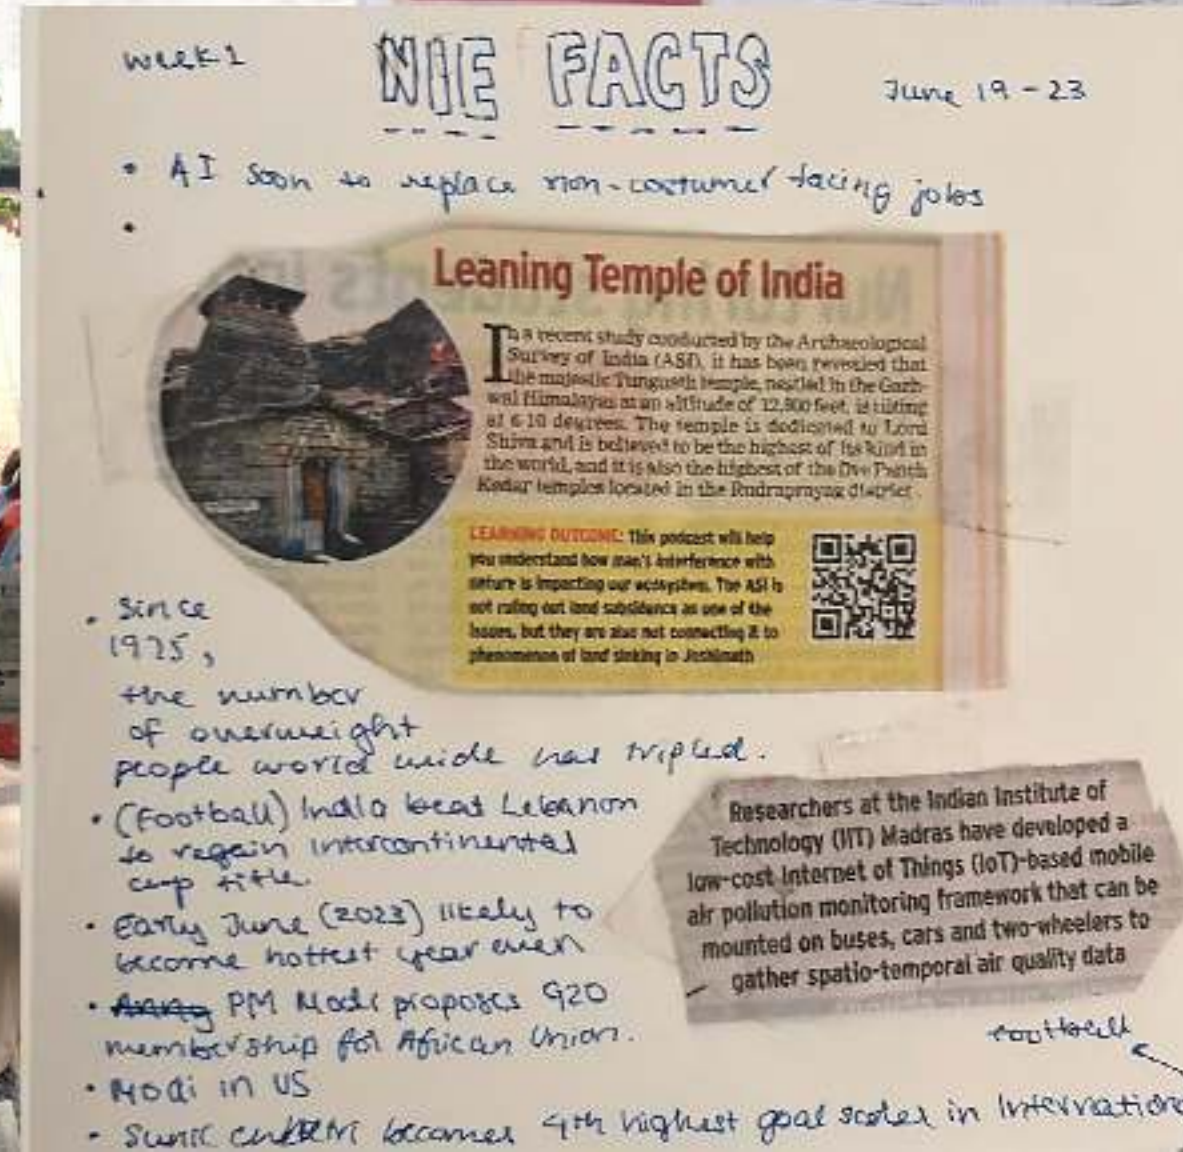 week 1
NIE FACTS
June 19 - 23
• AI soon to replace non-costumer facing jobs
•
Leaning Temple of India
In a recent study conducted by the Archaeological
Survey of India (ASI), it has been revealed that
the majestic Tungnath temple, nestled in the Garh-
wal Himalayas at an altitude of 12,800 feet, is tilting
at 6-10 degrees. The temple is dedicated to Lord
Shiva and is believed to be the highest of its kind in
the world, and it is also the highest of the Panch
Kedar temples located in the Rudraprayag district.
LEARNING OUTCOME: This podcast will help
you understand how man's interference with
nature is impacting our ecosystem. The ASI is
not ruling out land subsidence as one of the
issues, but they are also not connecting it to
phenomenon of land sinking in Joshimath
• Since
1975,
the number
of overweight
people world wide has tripled.
• (Football) India beat Lebanon
to regain intercontinental
cup title.
• Early June (2023) likely to
become hottest year ever
• PM Modi proposes G20
membership for African Union.
• Modi in US
• Sunil becomes 4th highest goal scorer in
Researchers at the Indian Institute of
Technology (IIT) Madras have developed a
low-cost Internet of Things (IoT)-based mobile
air pollution monitoring framework that can be
mounted on buses, cars and two-wheelers to
gather spatio-temporal air quality data
football